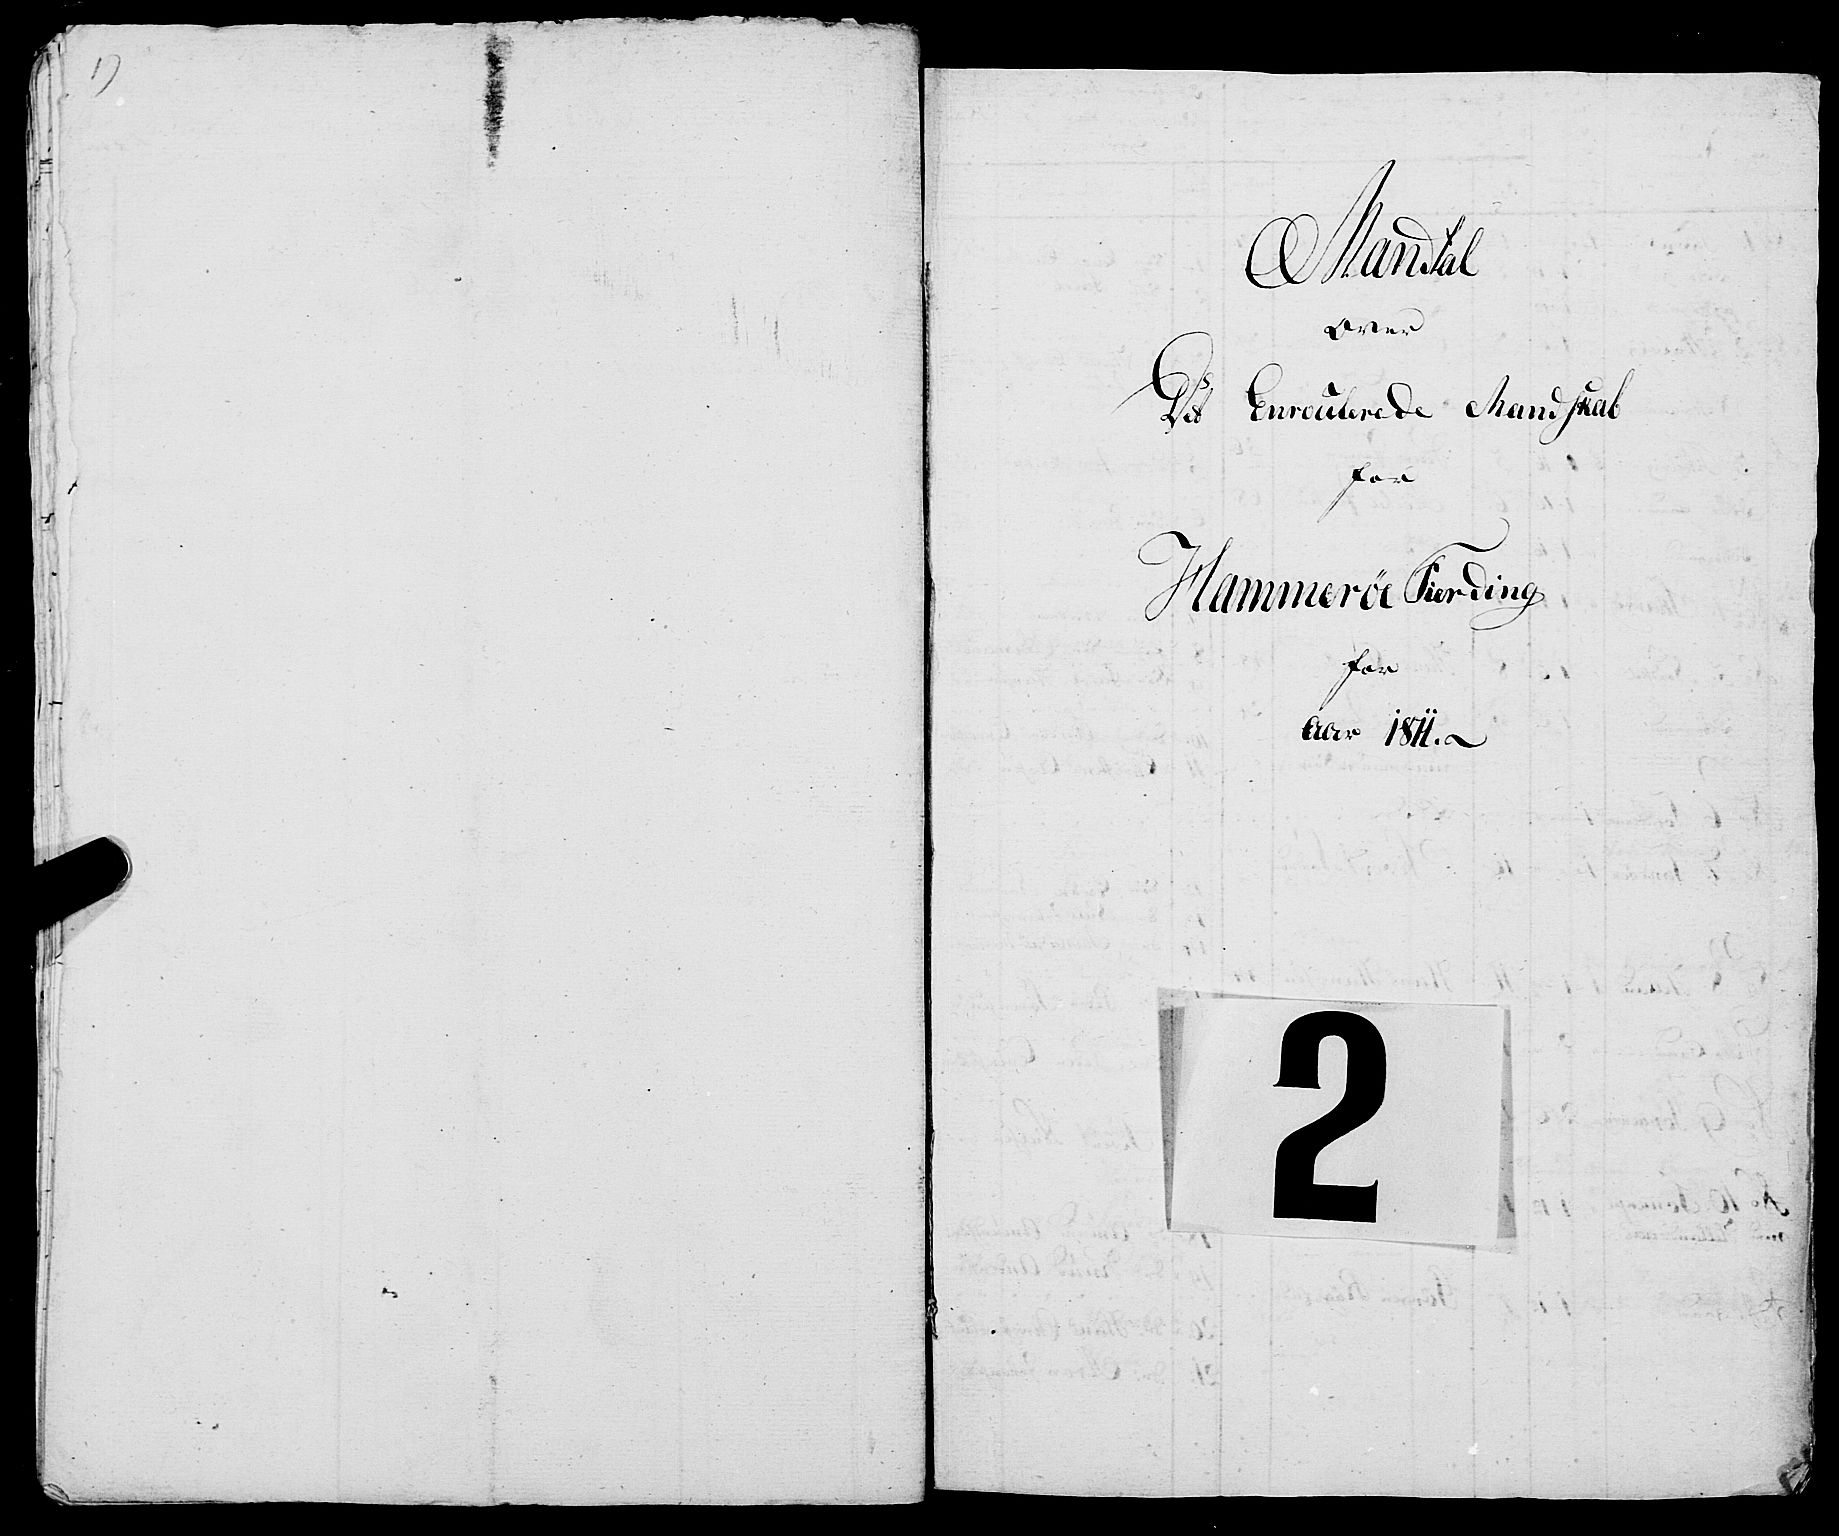 Mandtal
over
Det Enroulerede Mandskab
for
Hammerøe Fierding
for
Aar 1811.
2